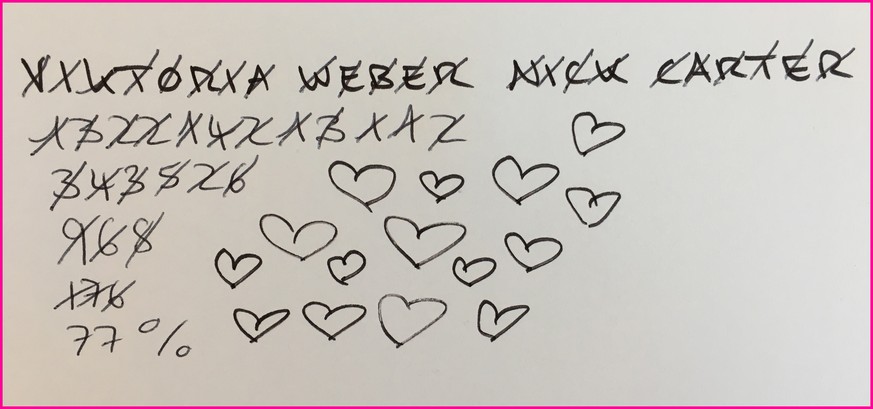 VIKTORIA WEBER NICK CARTER
132214213112
343526
968
176
77%